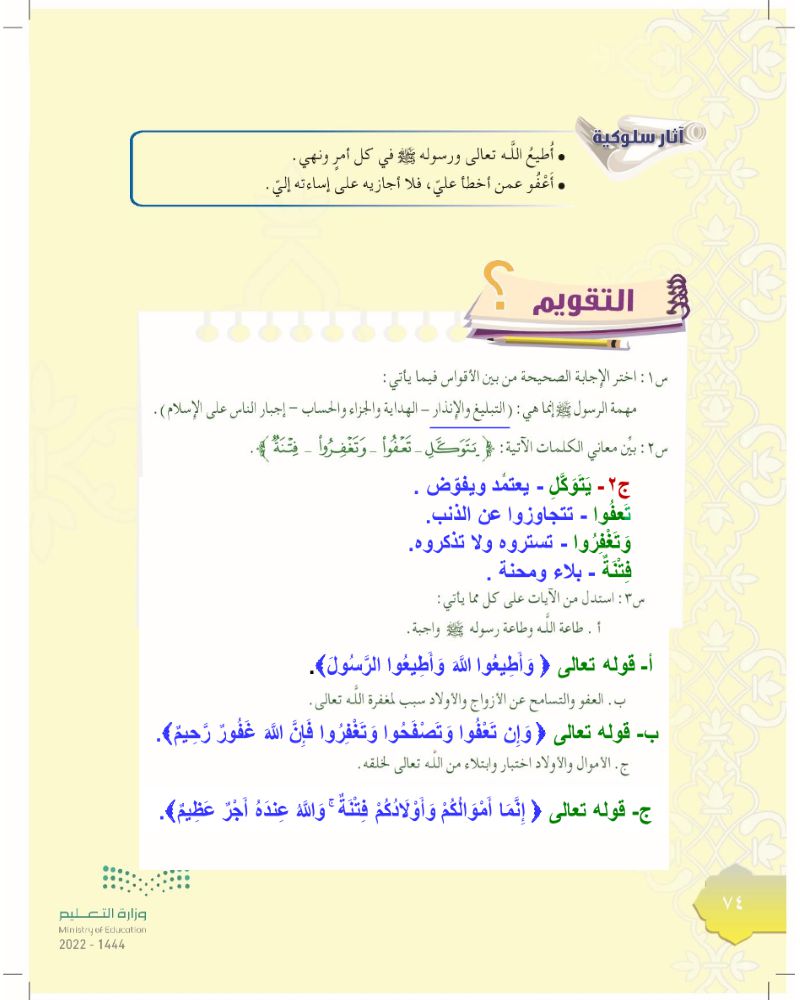 آثار سلوكية
• أُطيعُ اللَّه تعالى ورسوله ﷺ في كل أمرٍ ونهي.
• أَعْفُو عمن أخطأ عليّ، فلا أجازيه على إساءته إليّ.
التقويم
س١: اختر الإجابة الصحيحة من بين الأقواس فيما يأتي:
مهمة الرسول ﷺ إنما هي: (التبليغ والإنذار – الهداية والجزاء والحساب – إجبار الناس على الإسلام).
س٢: بيِّن معاني الكلمات الآتية: ﴿ يَتَوَكَّلِ - تَعۡفُواْ - وَتَغۡفِرُواْ - فِتۡنَةٌ ﴾.
ج٢- يَتَوَكَّلِ - يعتمد ويفوّض .
تَعفُوا - تتجاوزوا عن الذنب.
وَتَغْفِرُوا - تستروه ولا تذكروه.
فِتْنَةٌ - بلاء ومحنة .
س٣: استدل من الآيات على كل مما يأتي:
أ . طاعة اللَّه وطاعة رسوله ﷺ واجبة.
أ- قوله تعالى ﴿ وَأَطِيعُوا اللَّهَ وَأَطِيعُوا الرَّسُولَ﴾.
ب. العفو والتسامح عن الأزواج والأولاد سبب لمغفرة اللَّه تعالى.
ب- قوله تعالى ﴿ وَإِن تَعْفُوا وَتَصْفَحُوا وَتَغْفِرُوا فَإِنَّ اللَّهَ غَفُورٌ رَّحِيمٌ﴾.
ج. الأموال والأولاد اختبار وابتلاء من اللَّه تعالى لخلقه.
ج- قوله تعالى ﴿ إِنَّمَا أَمْوَالُكُمْ وَأَوْلَادُكُمْ فِتْنَةٌ ۚ وَاللَّهُ عِندَهُ أَجْرٌ عَظِيمٌ﴾.
وزارة التعليم
Ministry of Education
2022 - 1444
٧٤